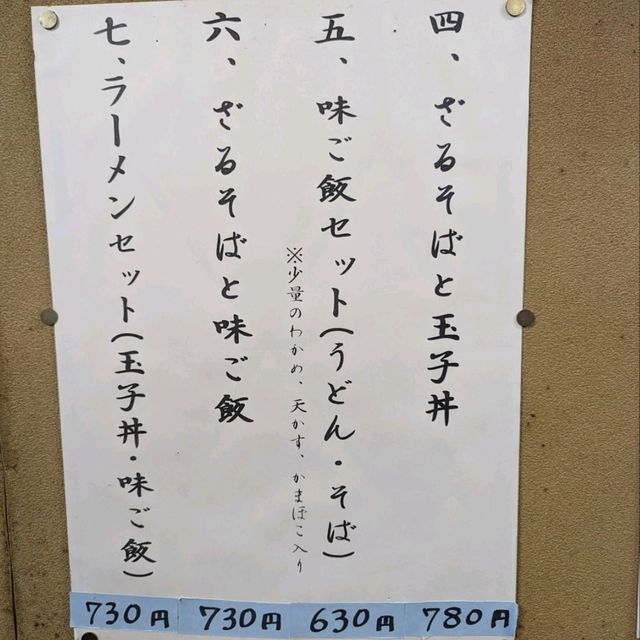 四、ざるそばと玉子丼
五、味ご飯セット(うどん・そば)
※少量のわかめ、天かす、かまぼこ入り
六、ざるそばと味ご飯
七、ラーメンセット(玉子丼・味ご飯)
780円
630円
730円
730円